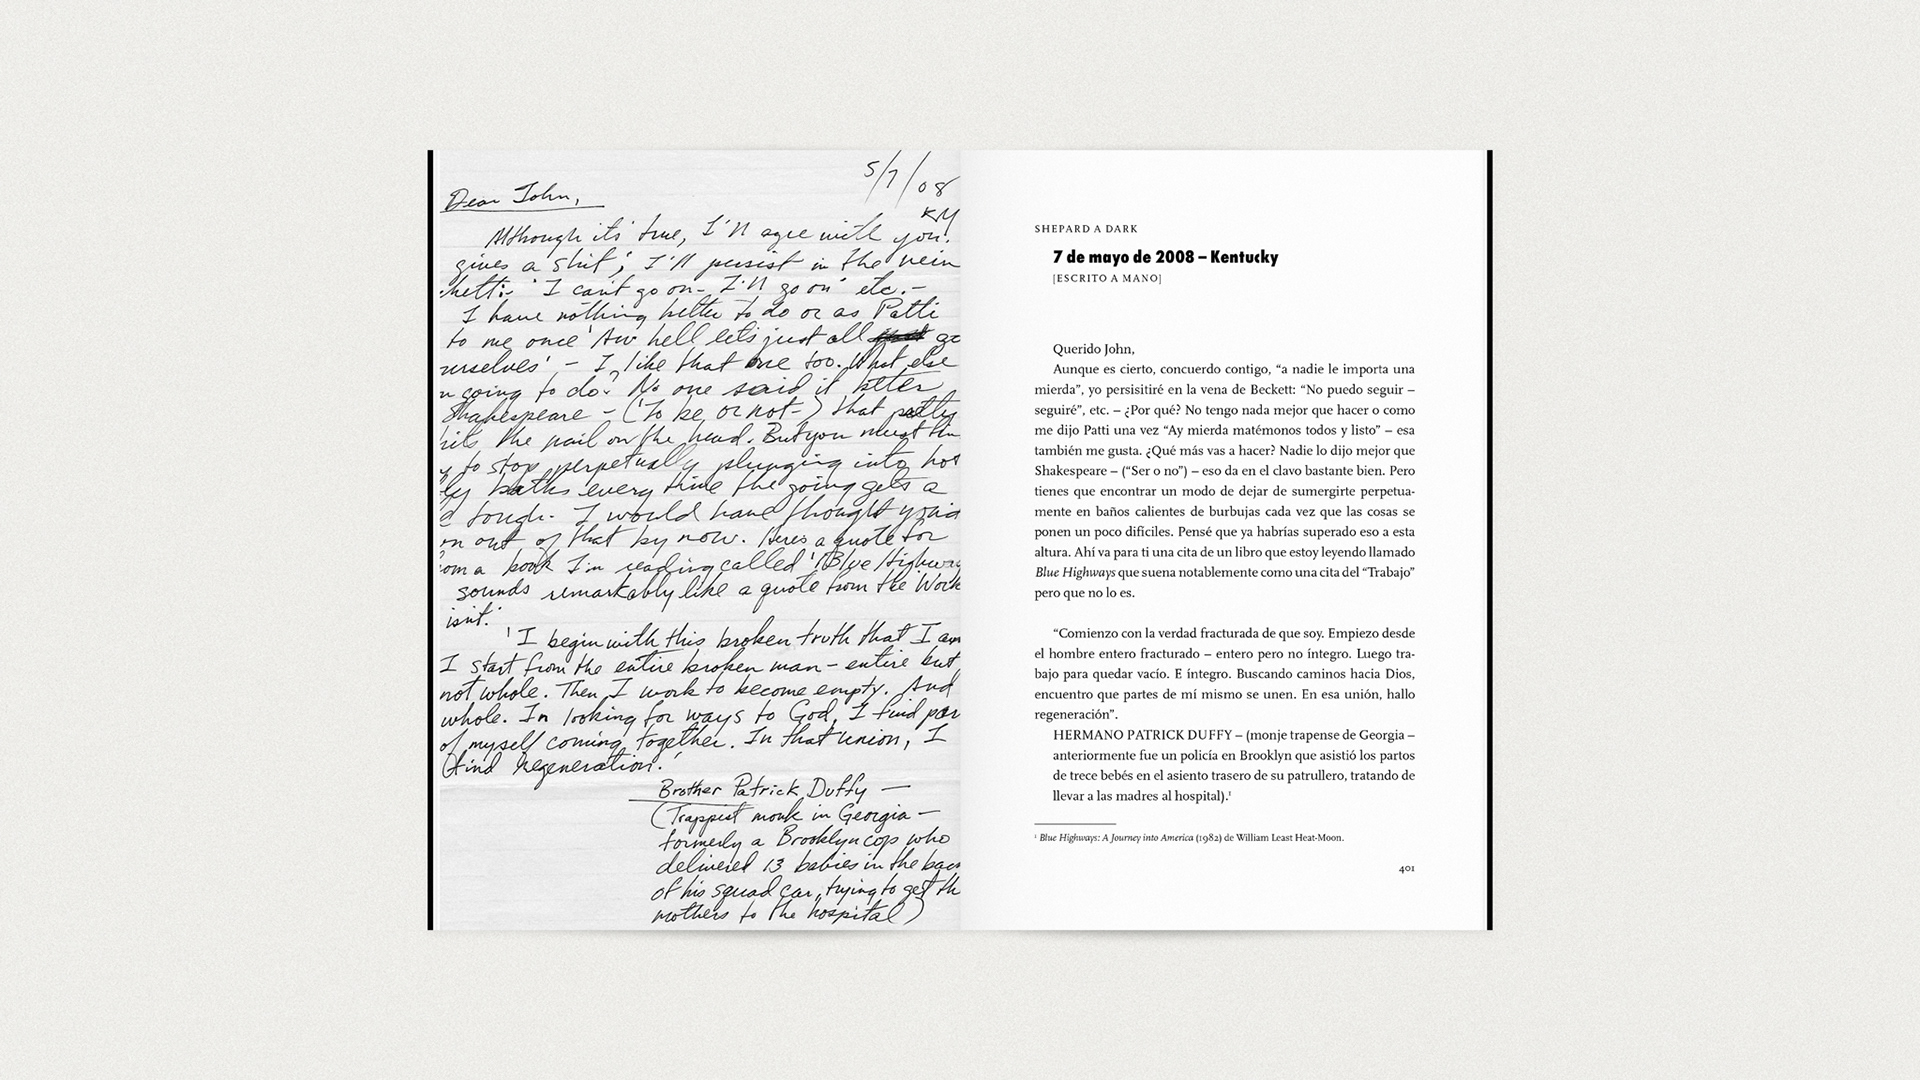 5/7/08
KY
Dear John,
Although it's true, I'll agree with you.
gives a shit', I'll persist in the vein
kett:- 'I can't go on- I'll go on' etc.-
I have nothing better to do or as Patti
to me once 'Aw hell let's just all go
urselves' - I like that one too. What else
going to do? No one said it better
Shakespeare - (To be or not-) that pretty
hits the nail on the head. But you must
to stop perpetually plunging into hot
bly baths every time the going gets a
tough. I would have thought
out of that by now. Heres a quote for
om a book I'm reading called 'Blue Highway
sounds remarkably like a quote from the Work
isn't.
'I begin with this broken truth that I am
I start from the entire broken man - entire but
not whole. Then I work to become empty. And
whole. In looking for ways to God, I find par
of myself coming together. In that union, I
find regeneration.'
Brother Patrick Duffy —
(Trappist monk in Georgia -
formerly a Brooklyn cop who
delivered 13 babies in the bac
of his squad car, trying to get th
mothers to the hospital)
SHEPARD A DARK
7 de mayo de 2008 – Kentucky
[ESCRITO A MANO]
Querido John,
Aunque es cierto, concuerdo contigo, “a nadie le importa una
mierda”, yo persisitiré en la vena de Beckett: “No puedo seguir –
seguiré”, etc. – ¿Por qué? No tengo nada mejor que hacer o como
me dijo Patti una vez “Ay mierda matémonos todos y listo” – esa
también me gusta. ¿Qué más vas a hacer? Nadie lo dijo mejor que
Shakespeare – (“Ser o no”) – eso da en el clavo bastante bien. Pero
tienes que encontrar un modo de dejar de sumergirte perpetua-
mente en baños calientes de burbujas cada vez que las cosas se
ponen un poco difíciles. Pensé que ya habrías superado eso a esta
altura. Ahí va para ti una cita de un libro que estoy leyendo llamado
Blue Highways que suena notablemente como una cita del “Trabajo”
pero que no lo es.
“Comienzo con la verdad fracturada de que soy. Empiezo desde
el hombre entero fracturado – entero pero no íntegro. Luego tra-
bajo para quedar vacío. E íntegro. Buscando caminos hacia Dios,
encuentro que partes de mí mismo se unen. En esa unión, hallo
regeneración”.
HERMANO PATRICK DUFFY – (monje trapense de Georgia –
anteriormente fue un policía en Brooklyn que asistió los partos
de trece bebés en el asiento trasero de su patrullero, tratando de
llevar a las madres al hospital).¹
¹ Blue Highways: A Journey into America (1982) de William Least Heat-Moon.
401